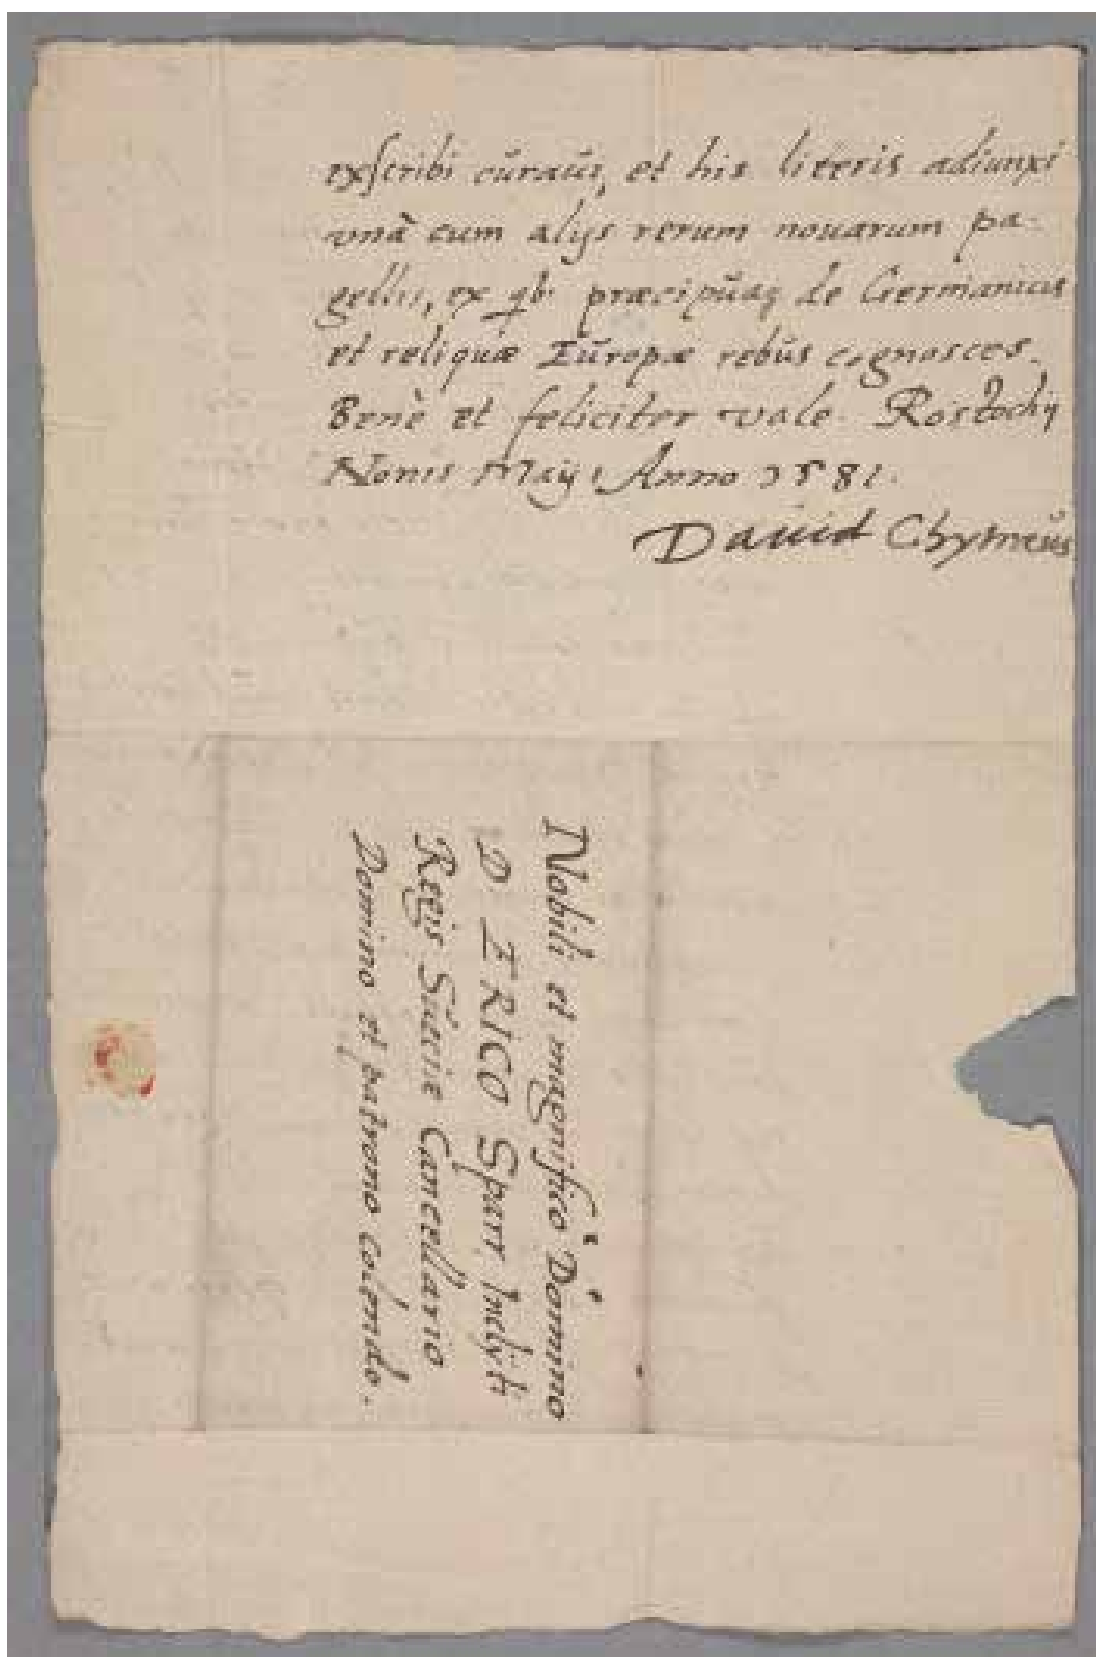 exscribi curavi, et his literis adiunxi
vnà cum alijs rerum nouarum pa-
gellis, ex qb. præcipua de Germanicis
et reliquæ Europæ rebus cognosces.
Benè et feliciter vale. Rostochij
Nonis Maij Anno 1581.
Dauid Chytræus
Nobili et magnifico Domino
D. ERICO Sparr Inclyti
Regis Sueciæ Cancellario
Domino et patrono colendo.